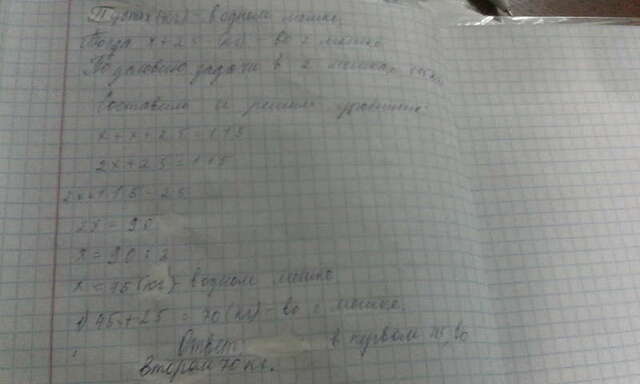 Пусть x(кг) - в одном мешке,
Тогда x + 25 (кг) во 2 мешке
По условию задачи в 2 мешках 115 кг
Составим и решим уравнение:
x + x + 25 = 115
2x + 25 = 115
2x = 115 - 25
2x = 90
x = 90 : 2
x = 45 (кг) - в одном мешке
1) 45 + 25 = 70 (кг) - во 2 мешке.
Ответ в первом 45, во
втором 70 кг.